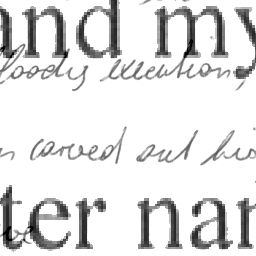 and my
bloody execution,
carved out his
ter nar